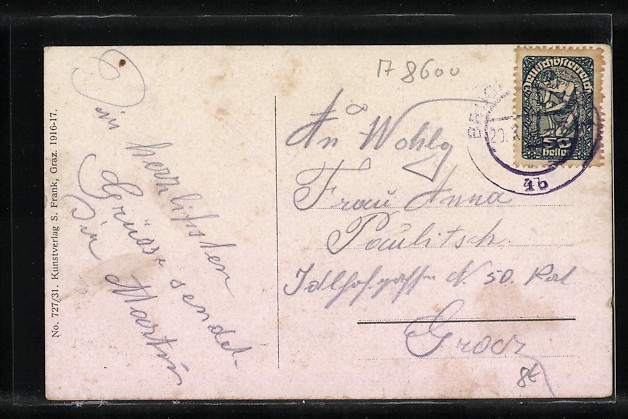 No. 727/31. Kunstverlag S. Frank, Graz. 1916-17.
Die herzlichsten
Grüsse sendet
Martin
A 8600
An Wohlg
Frau Anna
Paulitsch
Idlhofgasse N. 50.
Graz
8€
Deutschösterreich
50
Heller
20.
4b